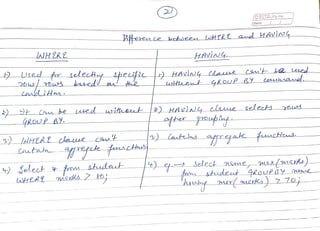 2
Difference between WHERE and HAVING
WHERE
HAVING
1) Used for selecting specific
row/rows based on the
condition.
2) It can be used without
GROUP BY.
3) WHERE clause can't
contain aggregate functions
4) Select * from student
WHERE marks > 10;
1) HAVING clause can't be used
without GROUP BY command.
2) HAVING clause selects rows
after grouping.
3) Contains aggregate functions.
4) eg → select name, max(marks)
from student GROUP BY name
having max(marks) > 70;